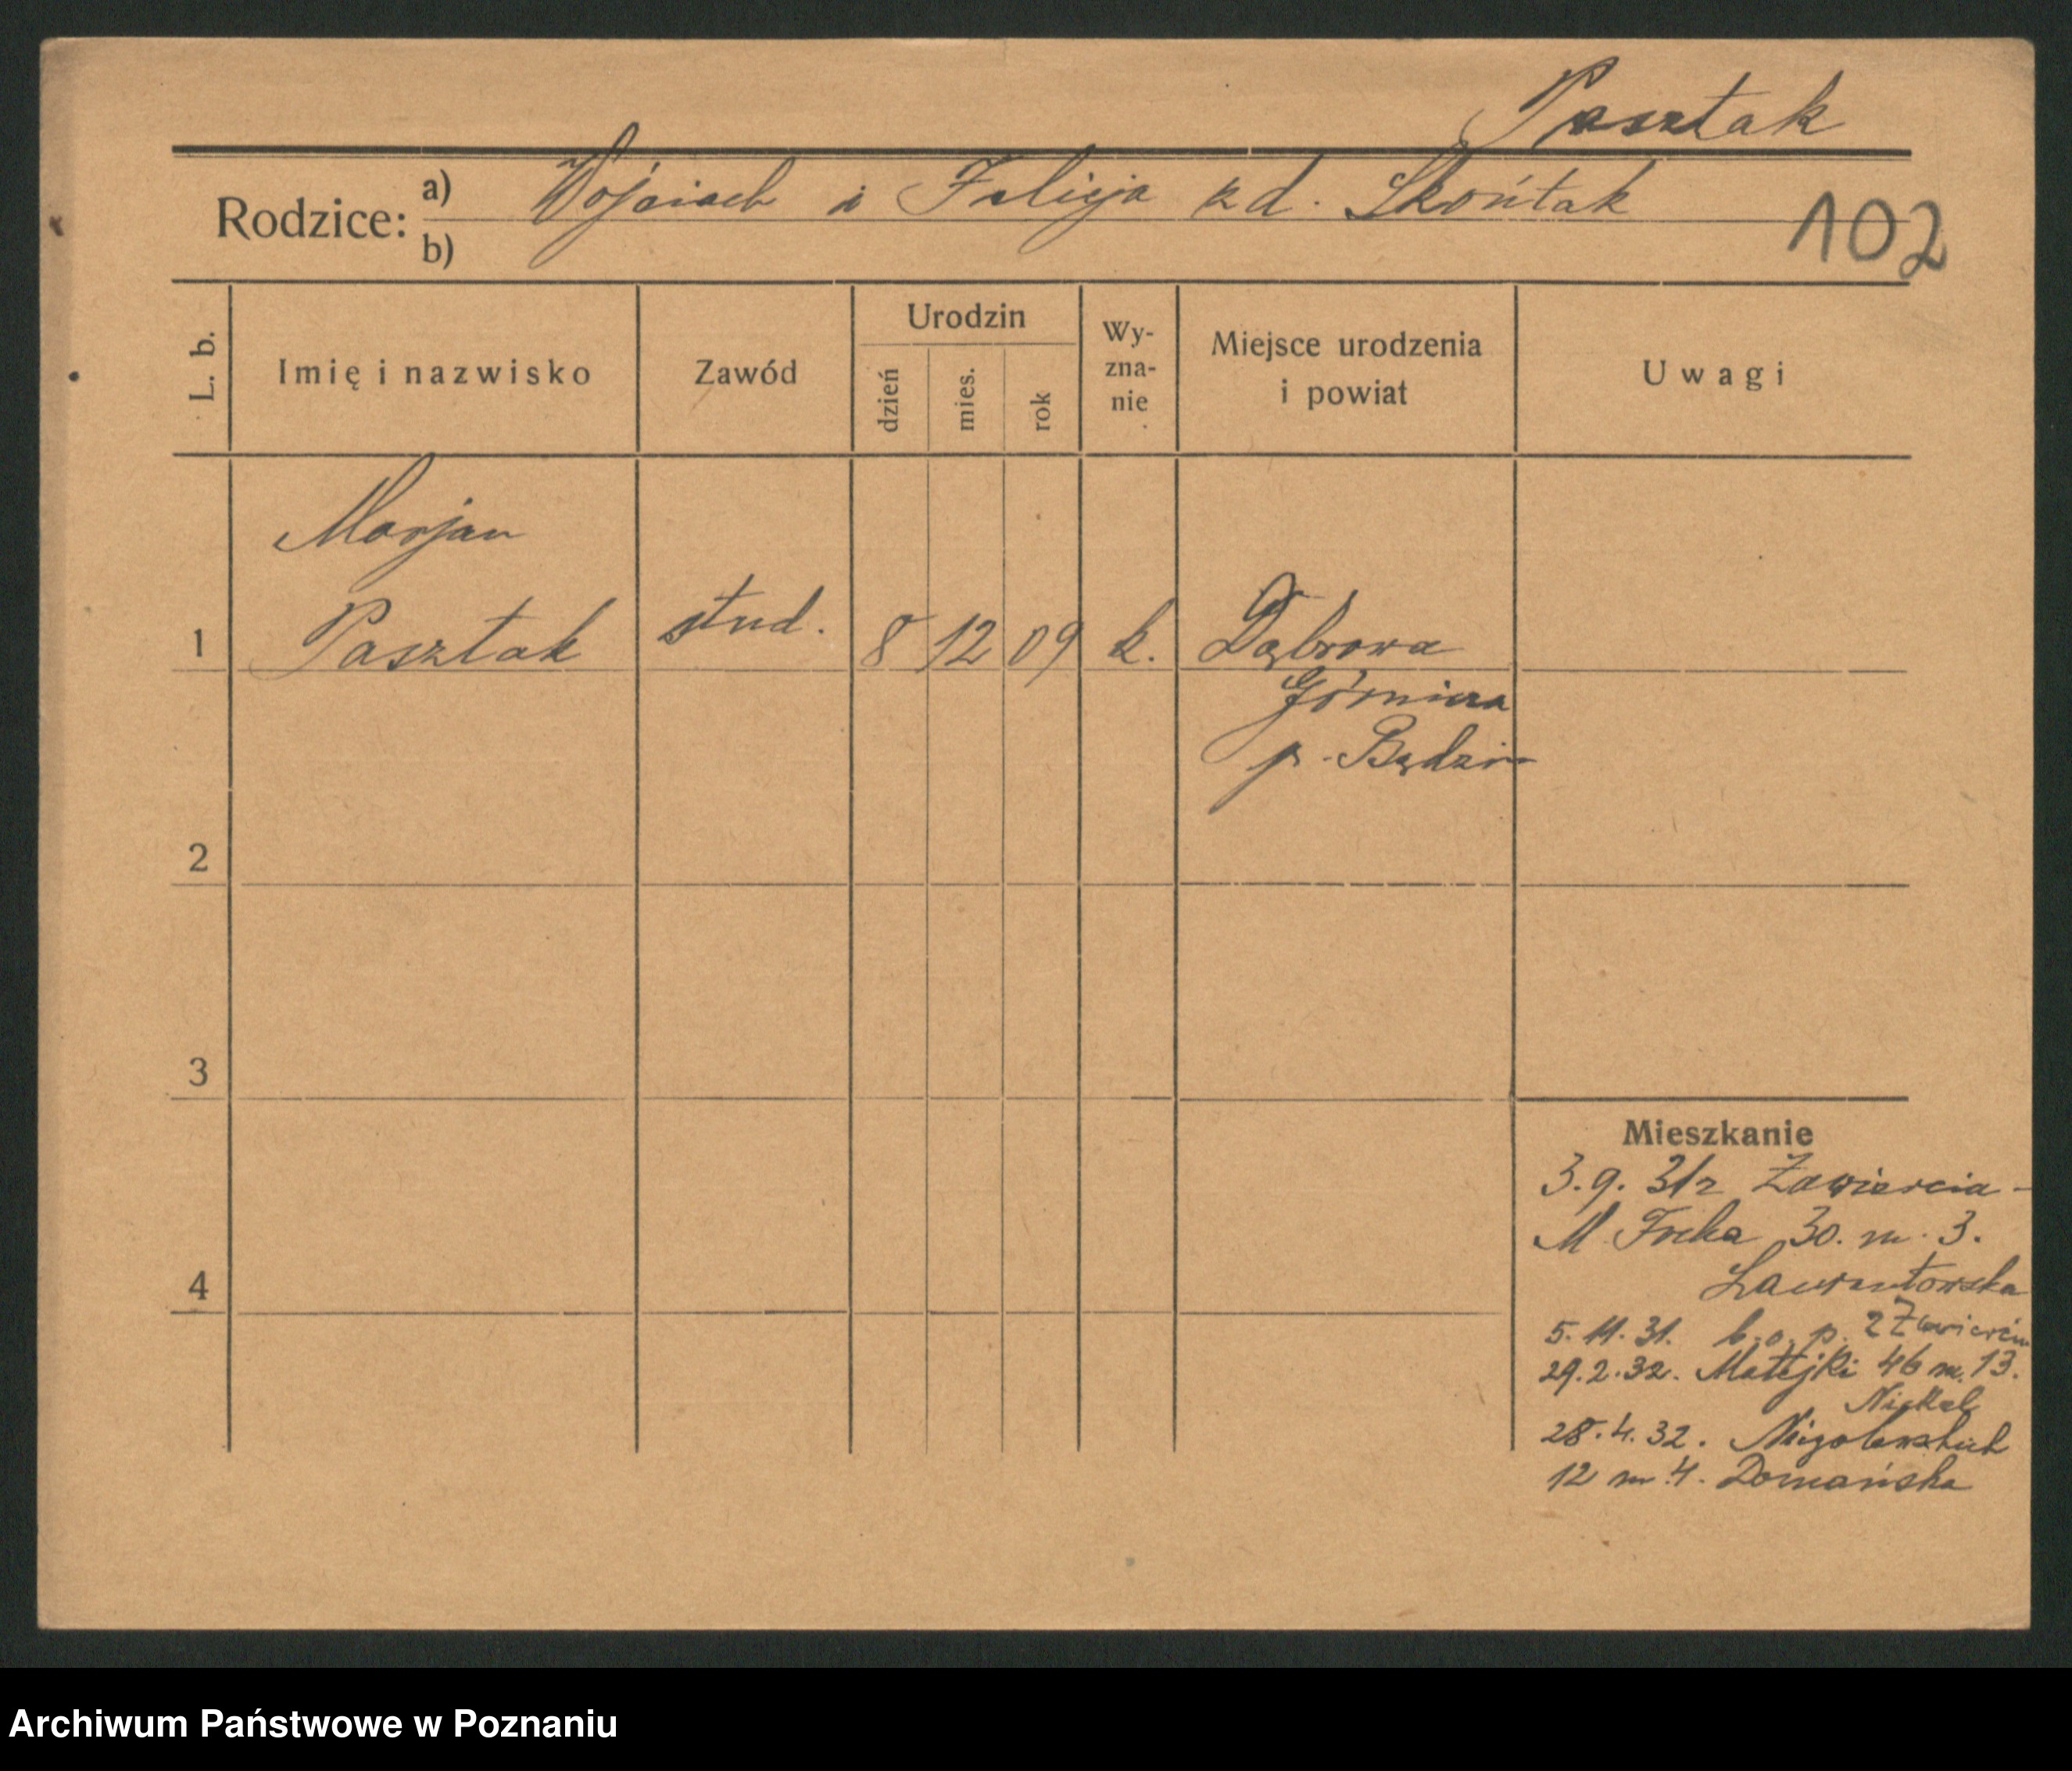 Pasztak
Rodzice: a) Wojciech i Felicja zd. Skońtak
b)
102
L. b.
Imię i nazwisko
Zawód
Urodzin
dzień
mies.
rok
Wy-
zna-
nie
Miejsce urodzenia
i powiat
Uwagi
Marjan
1 Pasztak stud. 8 12 09 k. Dąbrowa
Górnicza
p. Będzin
2
3
4
Mieszkanie
3.9.31 z Zawiercia -
M. Focha 30. m. 3.
5.11.31. b.o.p. z Zawiercia
29.2.32. Matejki 46 m. 13.
28.4.32. Niegolewskich
12 m 4. Domańska
Archiwum Państwowe w Poznaniu